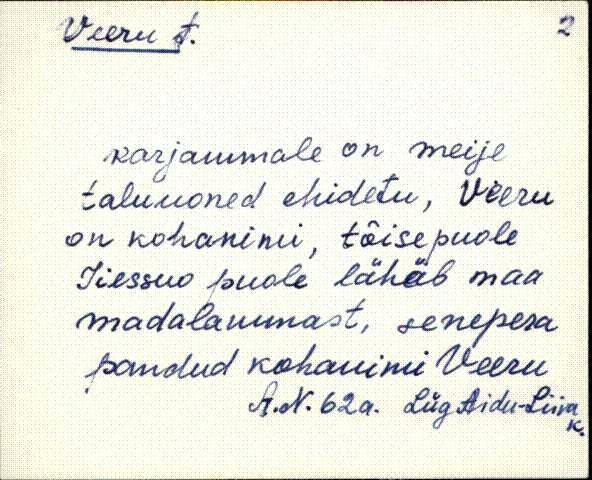 Veeru t. 2
karjammale on meije
taluuoned ehidetu, Veeru
on kohanimi, tõisepuole
Iiessuo puole lähäb maa
madalammast, senepera
pandud kohanimi Veeru
A.N. 62a. Lüg Aidu-Liiva
k.